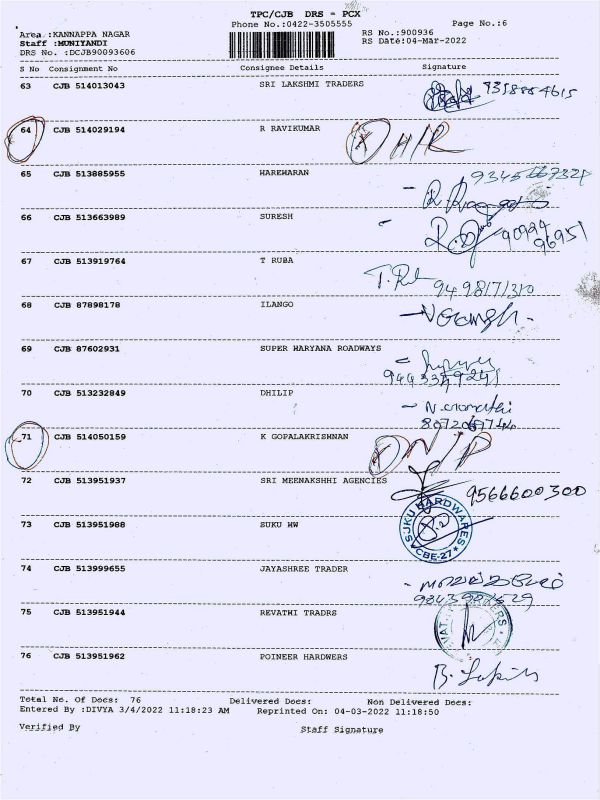 TPC/CJB DRS = PCX
Phone No.:0422-3505555 Page No.:6
Area :KANNAPPA NAGAR RS No.:900936
Staff :MUNIYANDI RS Date:04-Mar-2022
DRS No. :DCJB90093606
S No Consignment No Consignee Details Signature
63 CJB 514013043 SRI LAKSHMI TRADERS
64 CJB 514029194 R RAVIKUMAR
65 CJB 513885955 HAREWARAN
66 CJB 513663989 SURESH
67 CJB 513919764 T RUBA
9498171310
68 CJB 87898178 ILANGO
69 CJB 87602931 SUPER HARYANA ROADWAYS
70 CJB 513232849 DHILIP
71 CJB 514050159 K GOPALAKRISHNAN
72 CJB 513951937 SRI MEENAKSHHI AGENCIES
9566600300
73 CJB 513951988 SUKU HW
SUKU HARDWARES
CBE-27
74 CJB 513999655 JAYASHREE TRADER
75 CJB 513951944 REVATHI TRADRS
76 CJB 513951962 POINEER HARDWERS
Total No. Of Docs: 76 Delivered Docs: Non Delivered Docs:
Entered By :DIVYA 3/4/2022 11:18:23 AM Reprinted On: 04-03-2022 11:18:50
Verified By Staff Signature